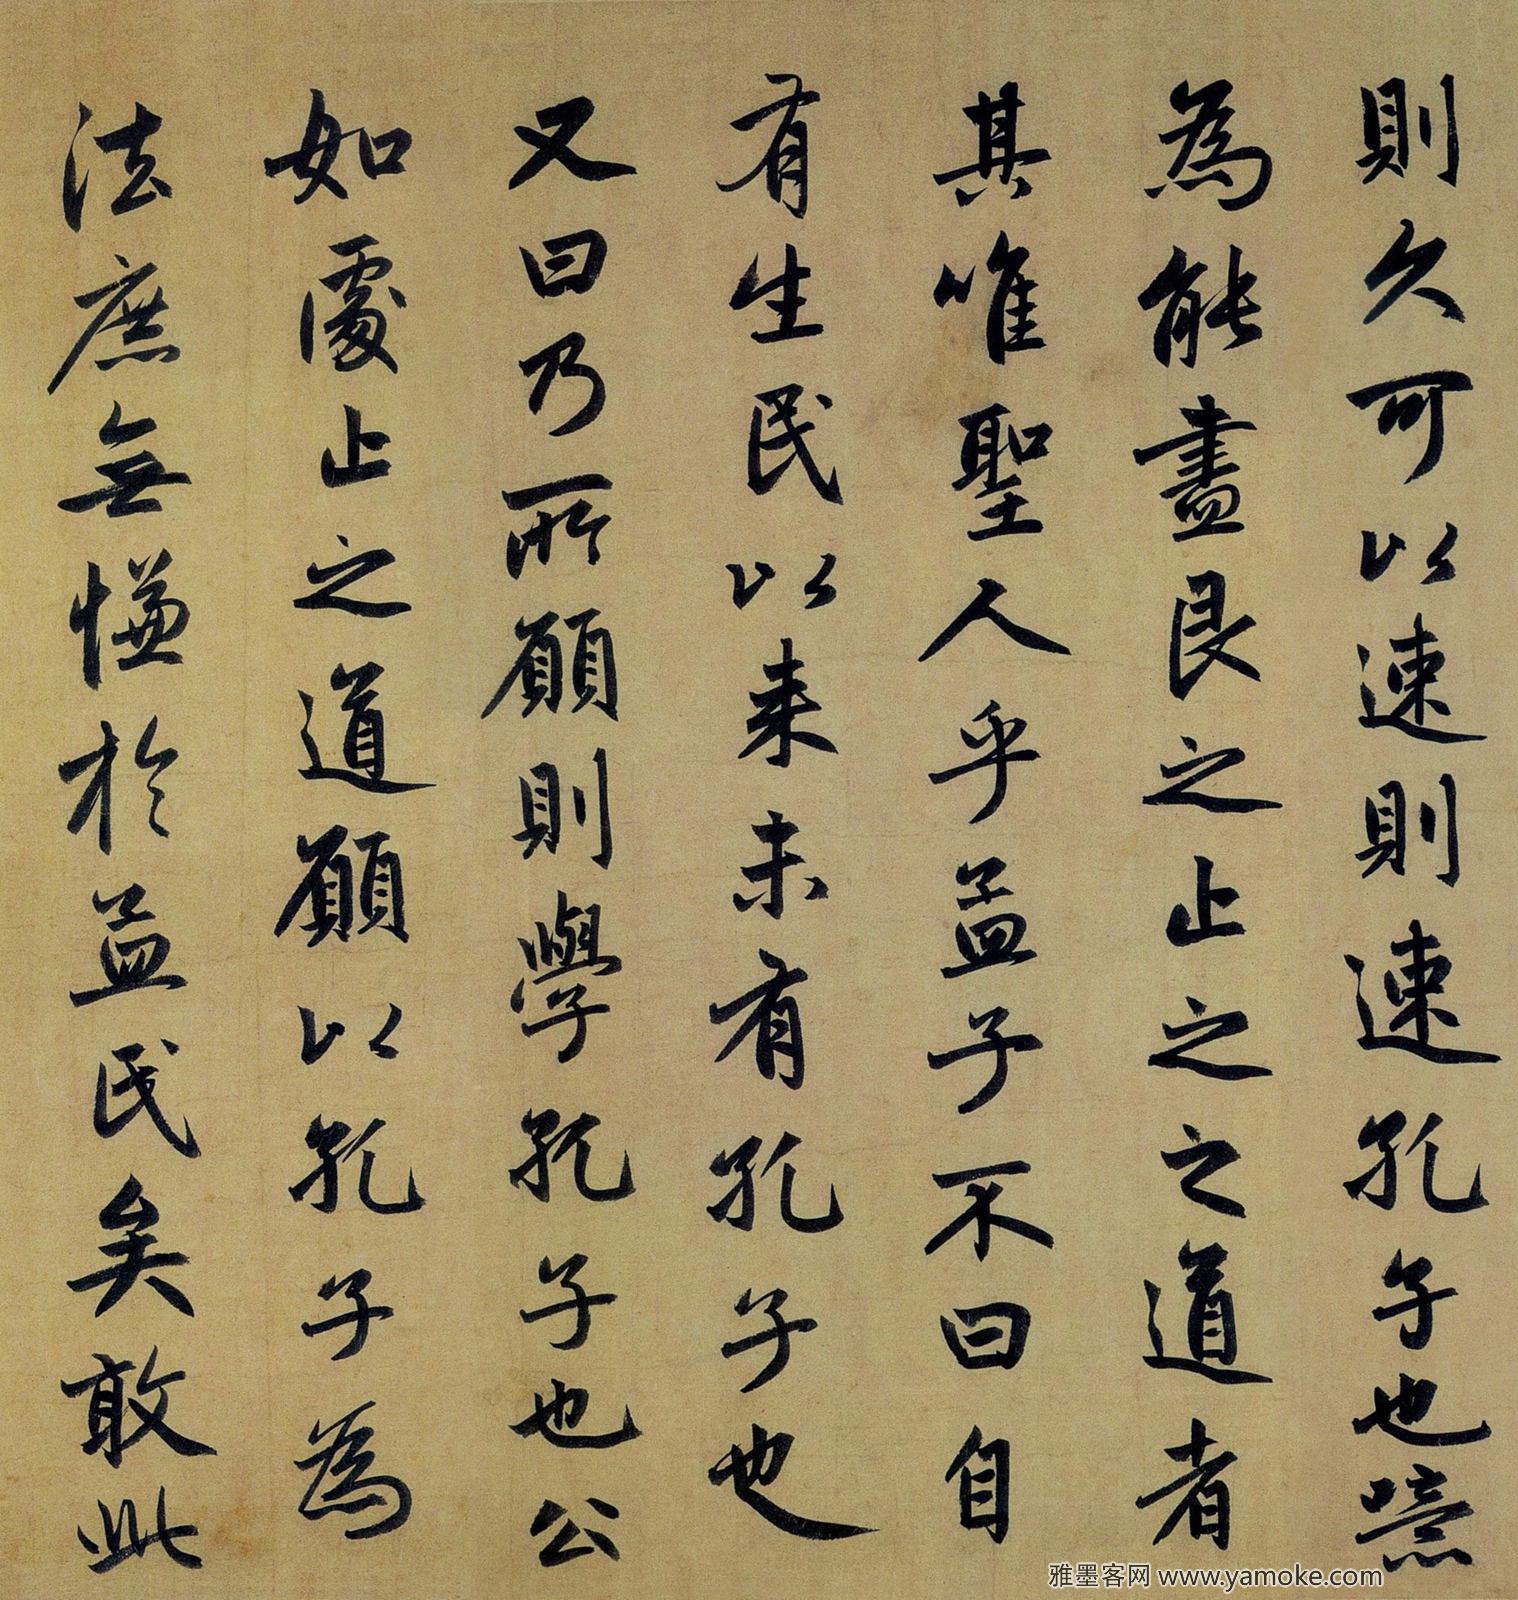 則久可以速則速孔子也噫
為能盡艮之止之之道者
其唯聖人乎孟子不曰自
有生民以来未有孔子也
又曰乃所願則學孔子也公
如處止之道願以孔子為
法庶無慊於益民矣敢此
雅墨客网 www.yamoke.com